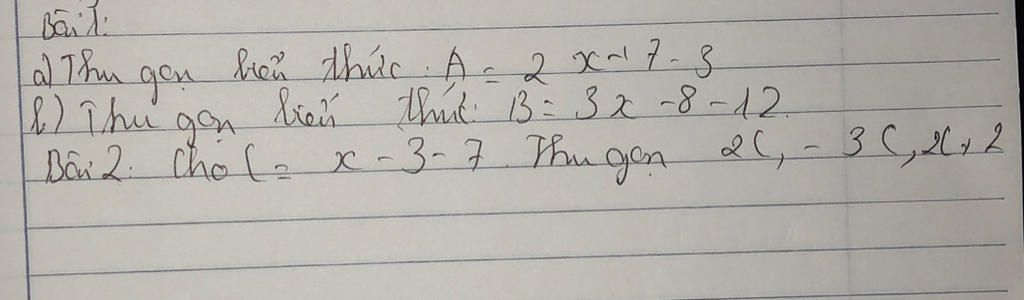 Bài 1:
a) Thu gọn biểu thức: A = 2 x + 7 - 3
b) Thu gọn biểu thức: B = 3x - 8 - 12.
Bài 2: Cho C = x - 3 - 7. Thu gọn 2C, - 3C,